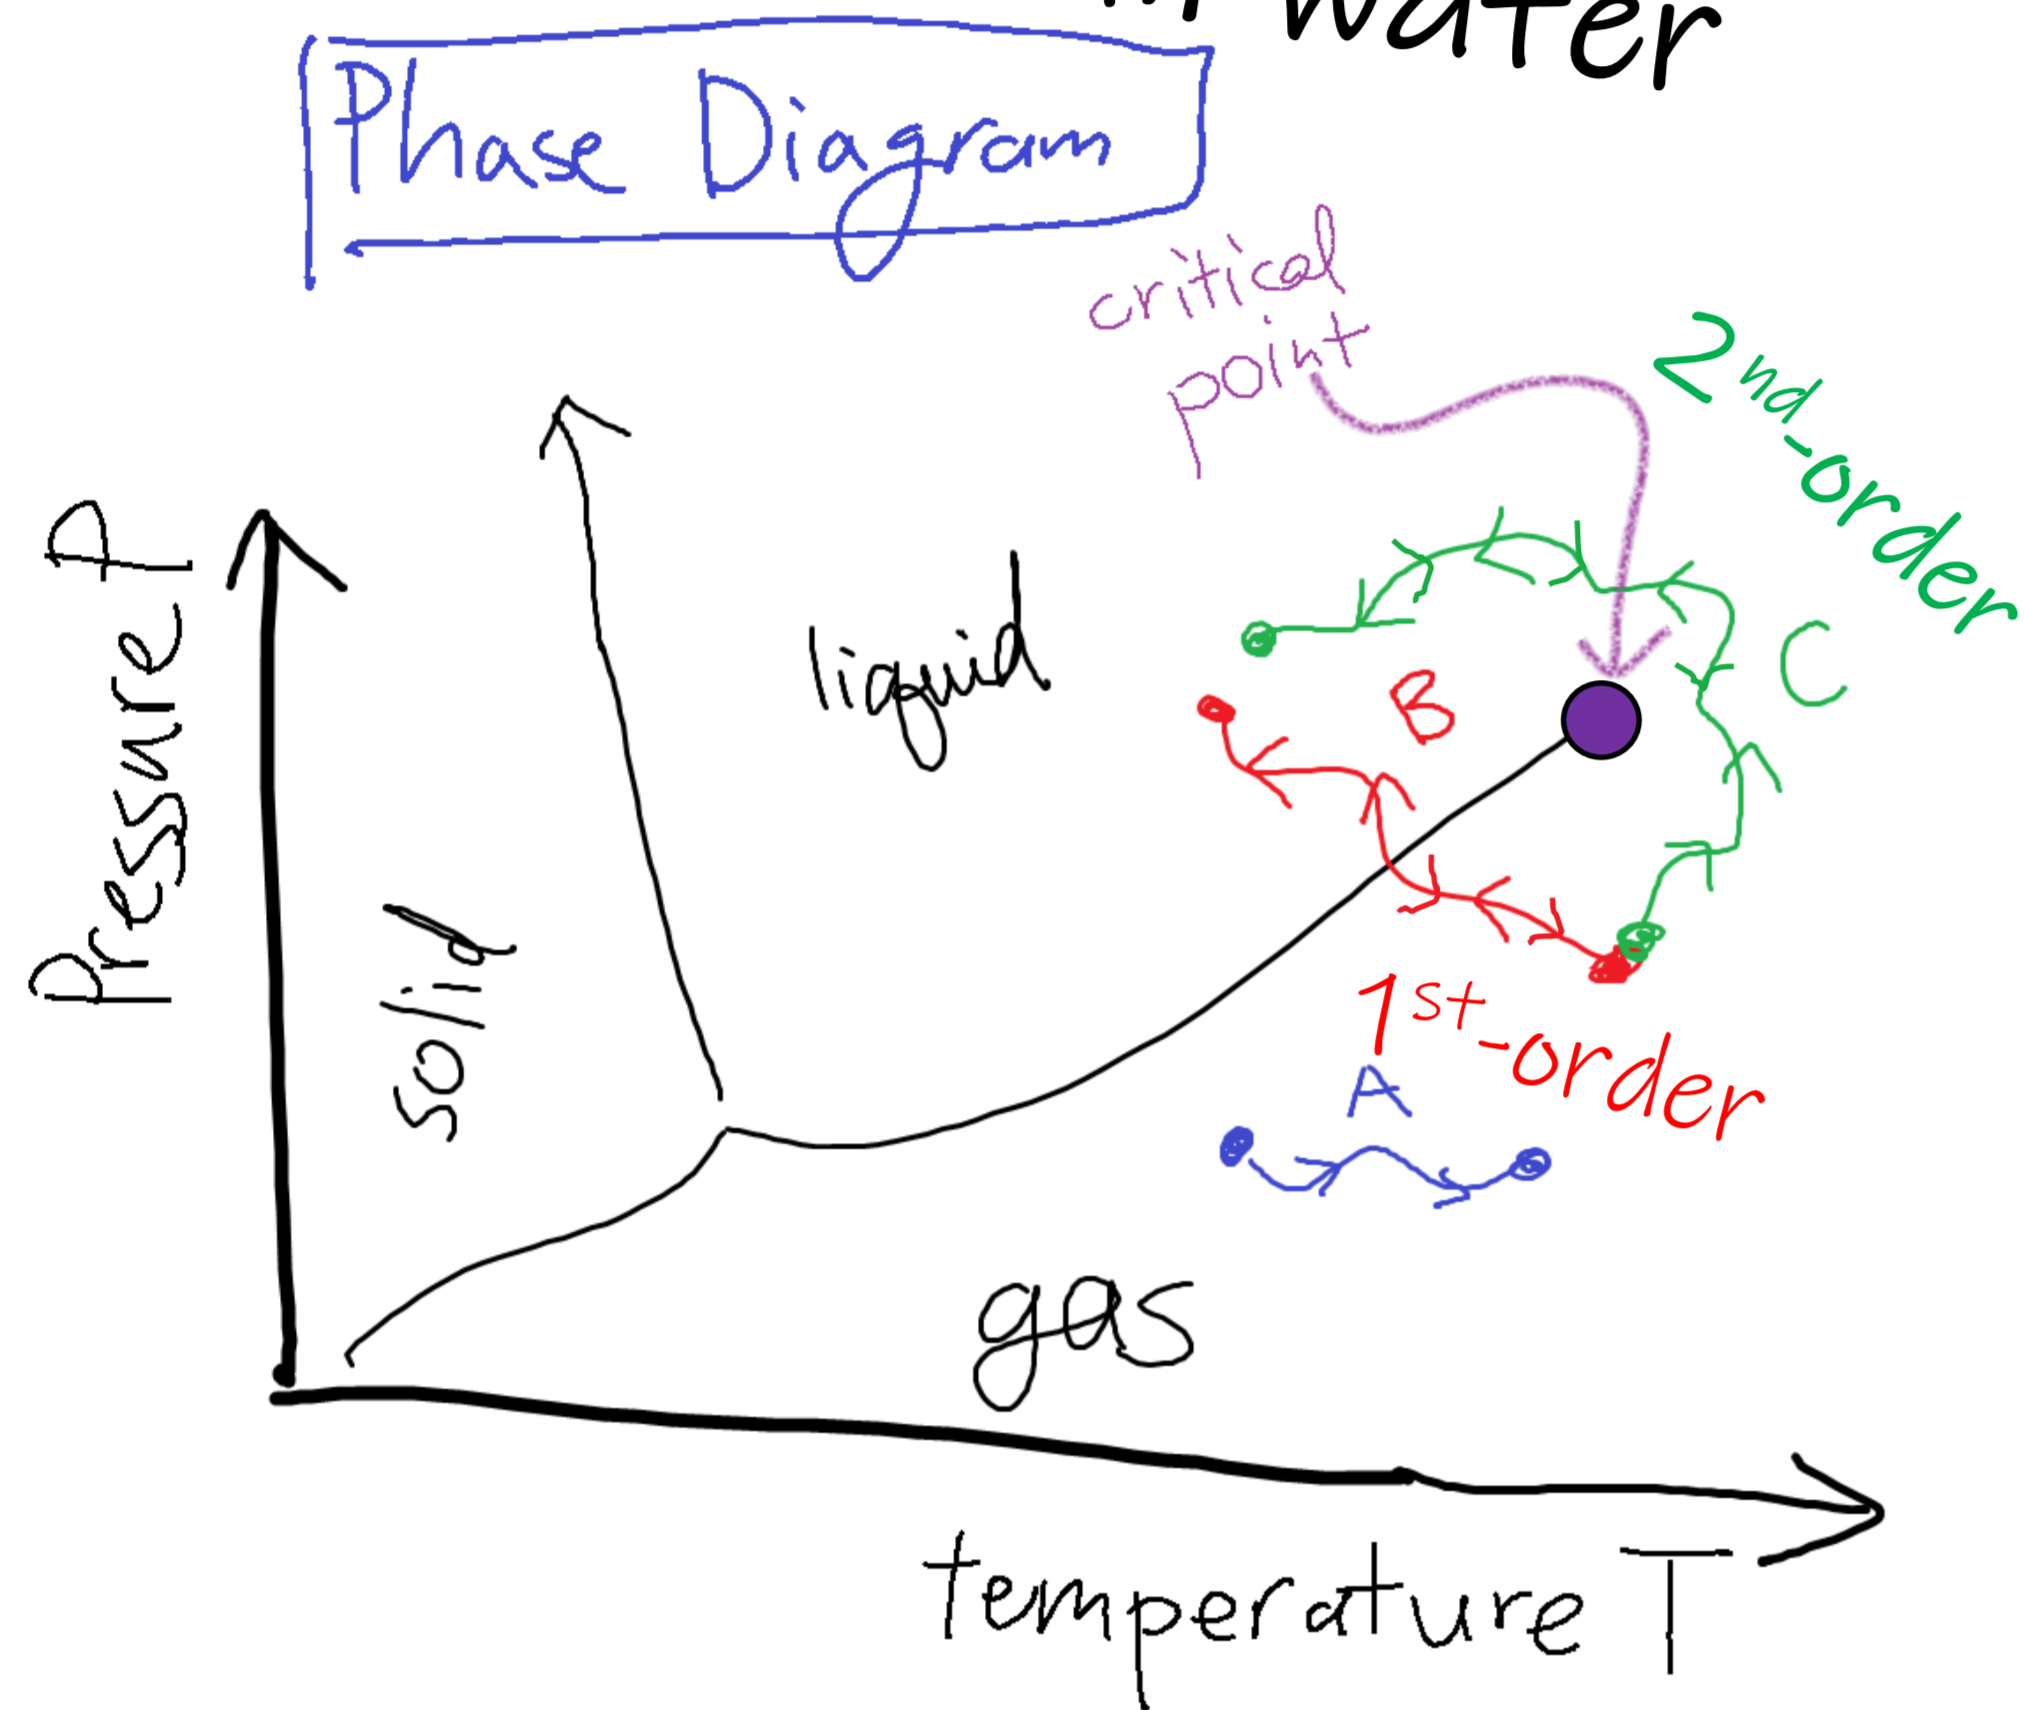 water
Phase Diagram
critical
point
2nd-order
Pressure P
liquid
B
C
solid
1st-order
A
gas
temperature T